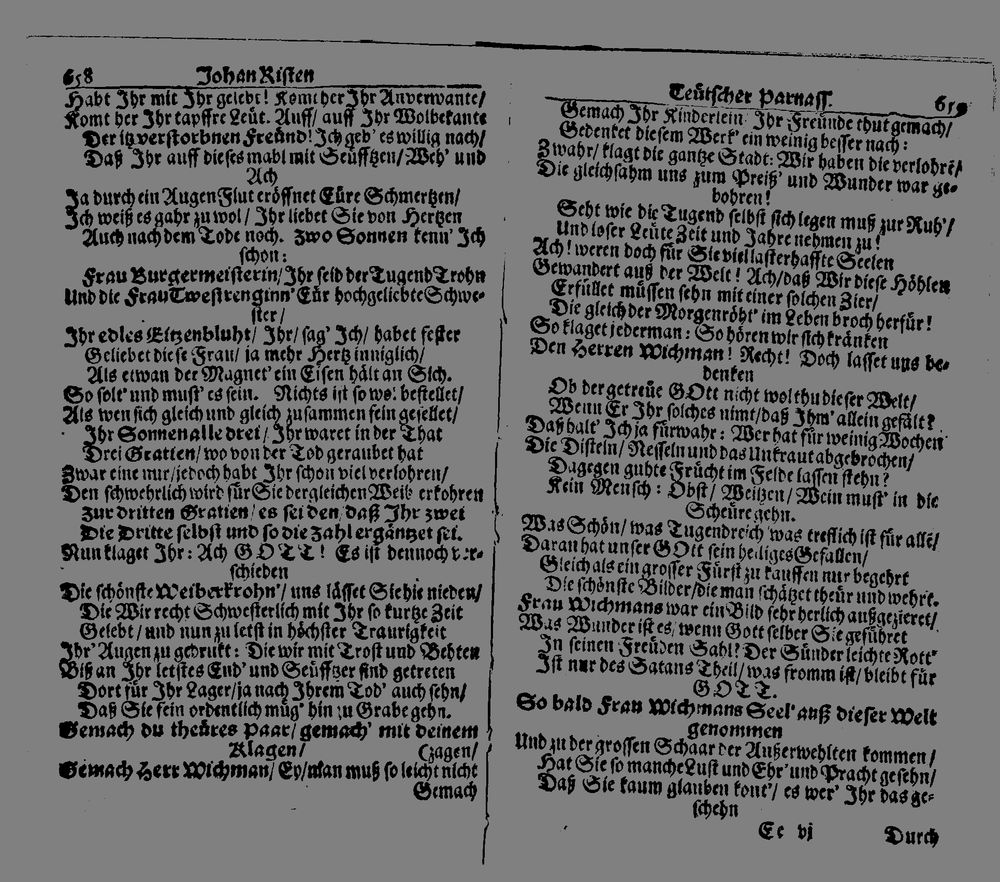 658 Johan Risten
Habt Ihr mit Ihr gelebt! Komt her Ihr Anverwante/
Komt her Ihr tapffre Leüt. Auff/ auff Ihr Wolbekante
Der itz verstorbnen Freünd! Ich geb' es willig nach/
Daß Ihr auff dieses mahl mit Seüfftzen/ Weh' und
Ach
Ja durch ein AugenFlut eröffnet Eüre Schmertzen/
Ich weiß es gahr zu wol/ Ihr liebet Sie von Hertzen
Auch nach dem Tode noch. Zwo Sonnen kenn' Ich
schon:
Frau Burgermeisterin/ Ihr seid der Tugend Trohn
Und die Frau Twestrenginn' Eür hochgeliebte Schwe-
ster/
Ihr edles Eitzenbluht/ Ihr/ sag' Ich/ habet fester
Geliebet diese Frau/ ja mehr Hertz inniglich/
Als etwan der Magnet' ein Eisen hält an Sich.
So solt' und must' es sein. Nichts ist so wol bestellet/
Als wen sich gleich und gleich zusammen fein gesellet/
Ihr Sonnen alle drei/ Ihr waret in der That
Drei Gratien/ wo von der Tod geraubet hat
Zwar eine nur/ jedoch habt Ihr schon viel verlohren/
Den schwehrlich wird für Sie dergleichen Weib erkohren
Zur dritten Gratien/ es sei den/ daß Ihr zwei
Die Dritte selbst und so die Zahl ergäntzet sei.
Nun klaget Ihr: Ach GOTT! Es ist dennoch ver-
schieden
Die schönste Weiberkrohn'/ uns lässet Sie hie nieden/
Die Wir recht Schwesterlich mit Ihr so kurtze Zeit
Gelebt/ und nun zu letst in höchster Traurigkeit
Ihr' Augen zu gedrukt: Die wir mit Trost und Behten
Biß an Ihr letstes End' und Seüfftzer sind getreten
Dort für Ihr Lager/ ja nach Ihrem Tod' auch sehn/
Daß Sie fein ordentlich müg' hin zu Grabe gehn.
Gemach du theüres Paar/ gemach' mit deinem
Klagen/ (zagen/
Gemach Herr Wichman/ Ey/ man muß so leicht nicht
Gemach
Teütscher Parnass. 659
Gemach Ihr Kinderlein/ Ihr Freünde thut gemach/
Gedenket diesem Werk' ein weinig besser nach:
Zwahr/ klagt die gantze Stadt: Wir haben die verlohrē/
Die gleichsahm uns zum Preiß' und Wunder war ge-
bohren!
Seht wie die Tugend selbst sich legen muß zur Ruh'/
Und loser Leüte Zeit und Jahre nehmen zu!
Ach! weren doch für Sie viel lasterhaffte Seelen
Gewandert auß der Welt! Ach/ daß Wir diese Höhlen
Erfüllet müssen sehn mit einer solchen Zier/
Die gleich der Morgenröht' im Leben broch herfür!
So klaget jederman: So hören wir sich kränken
Den Herren Wichman! Recht! Doch lasset uns be-
denken
Ob der getreüe GOtt nicht wol thu dieser Welt/
Wenn Er Ihr solches nimt/ daß Ihm' allein gefält?
Daß halt' Ich ja fürwahr: Wer hat für weinig Wochen
Die Disteln/ Nesseln und das Unkraut abgebrochen/
Dagegen guhte Frücht im Felde lassen stehn?
Kein Mensch: Obst/ Weitzen/ Wein must' in die
Scheüre gehn.
Was Schön/ was Tugendreich/ was treflich ist für allē/
Daran hat unser GOtt sein heiliges Gefallen/
Gleich als ein grosser Fürst zu kauffen nur begehrt
Die schönste Bilder/ die man schätzet theür und wehrt.
Frau Wichmans war ein Bild sehr herlich außgezieret/
Was Wunder ist es/ wenn Gott selber Sie geführet
In seinen Freüden Sahl? Der Sünder leichte Rott'
Ist nur des Satans Theil/ was fromm ist/ bleibt für
GOTT.
So bald Frau Wichmans Seel' auß dieser Welt
genommen
Und zu der grossen Schaar der Außerwehlten kommen/
Hat Sie so manche Lust und Ehr' und Pracht gesehn/
Daß Sie kaum glauben kont'/ es wer' Ihr das ge-
schehn
Ee vj Durch